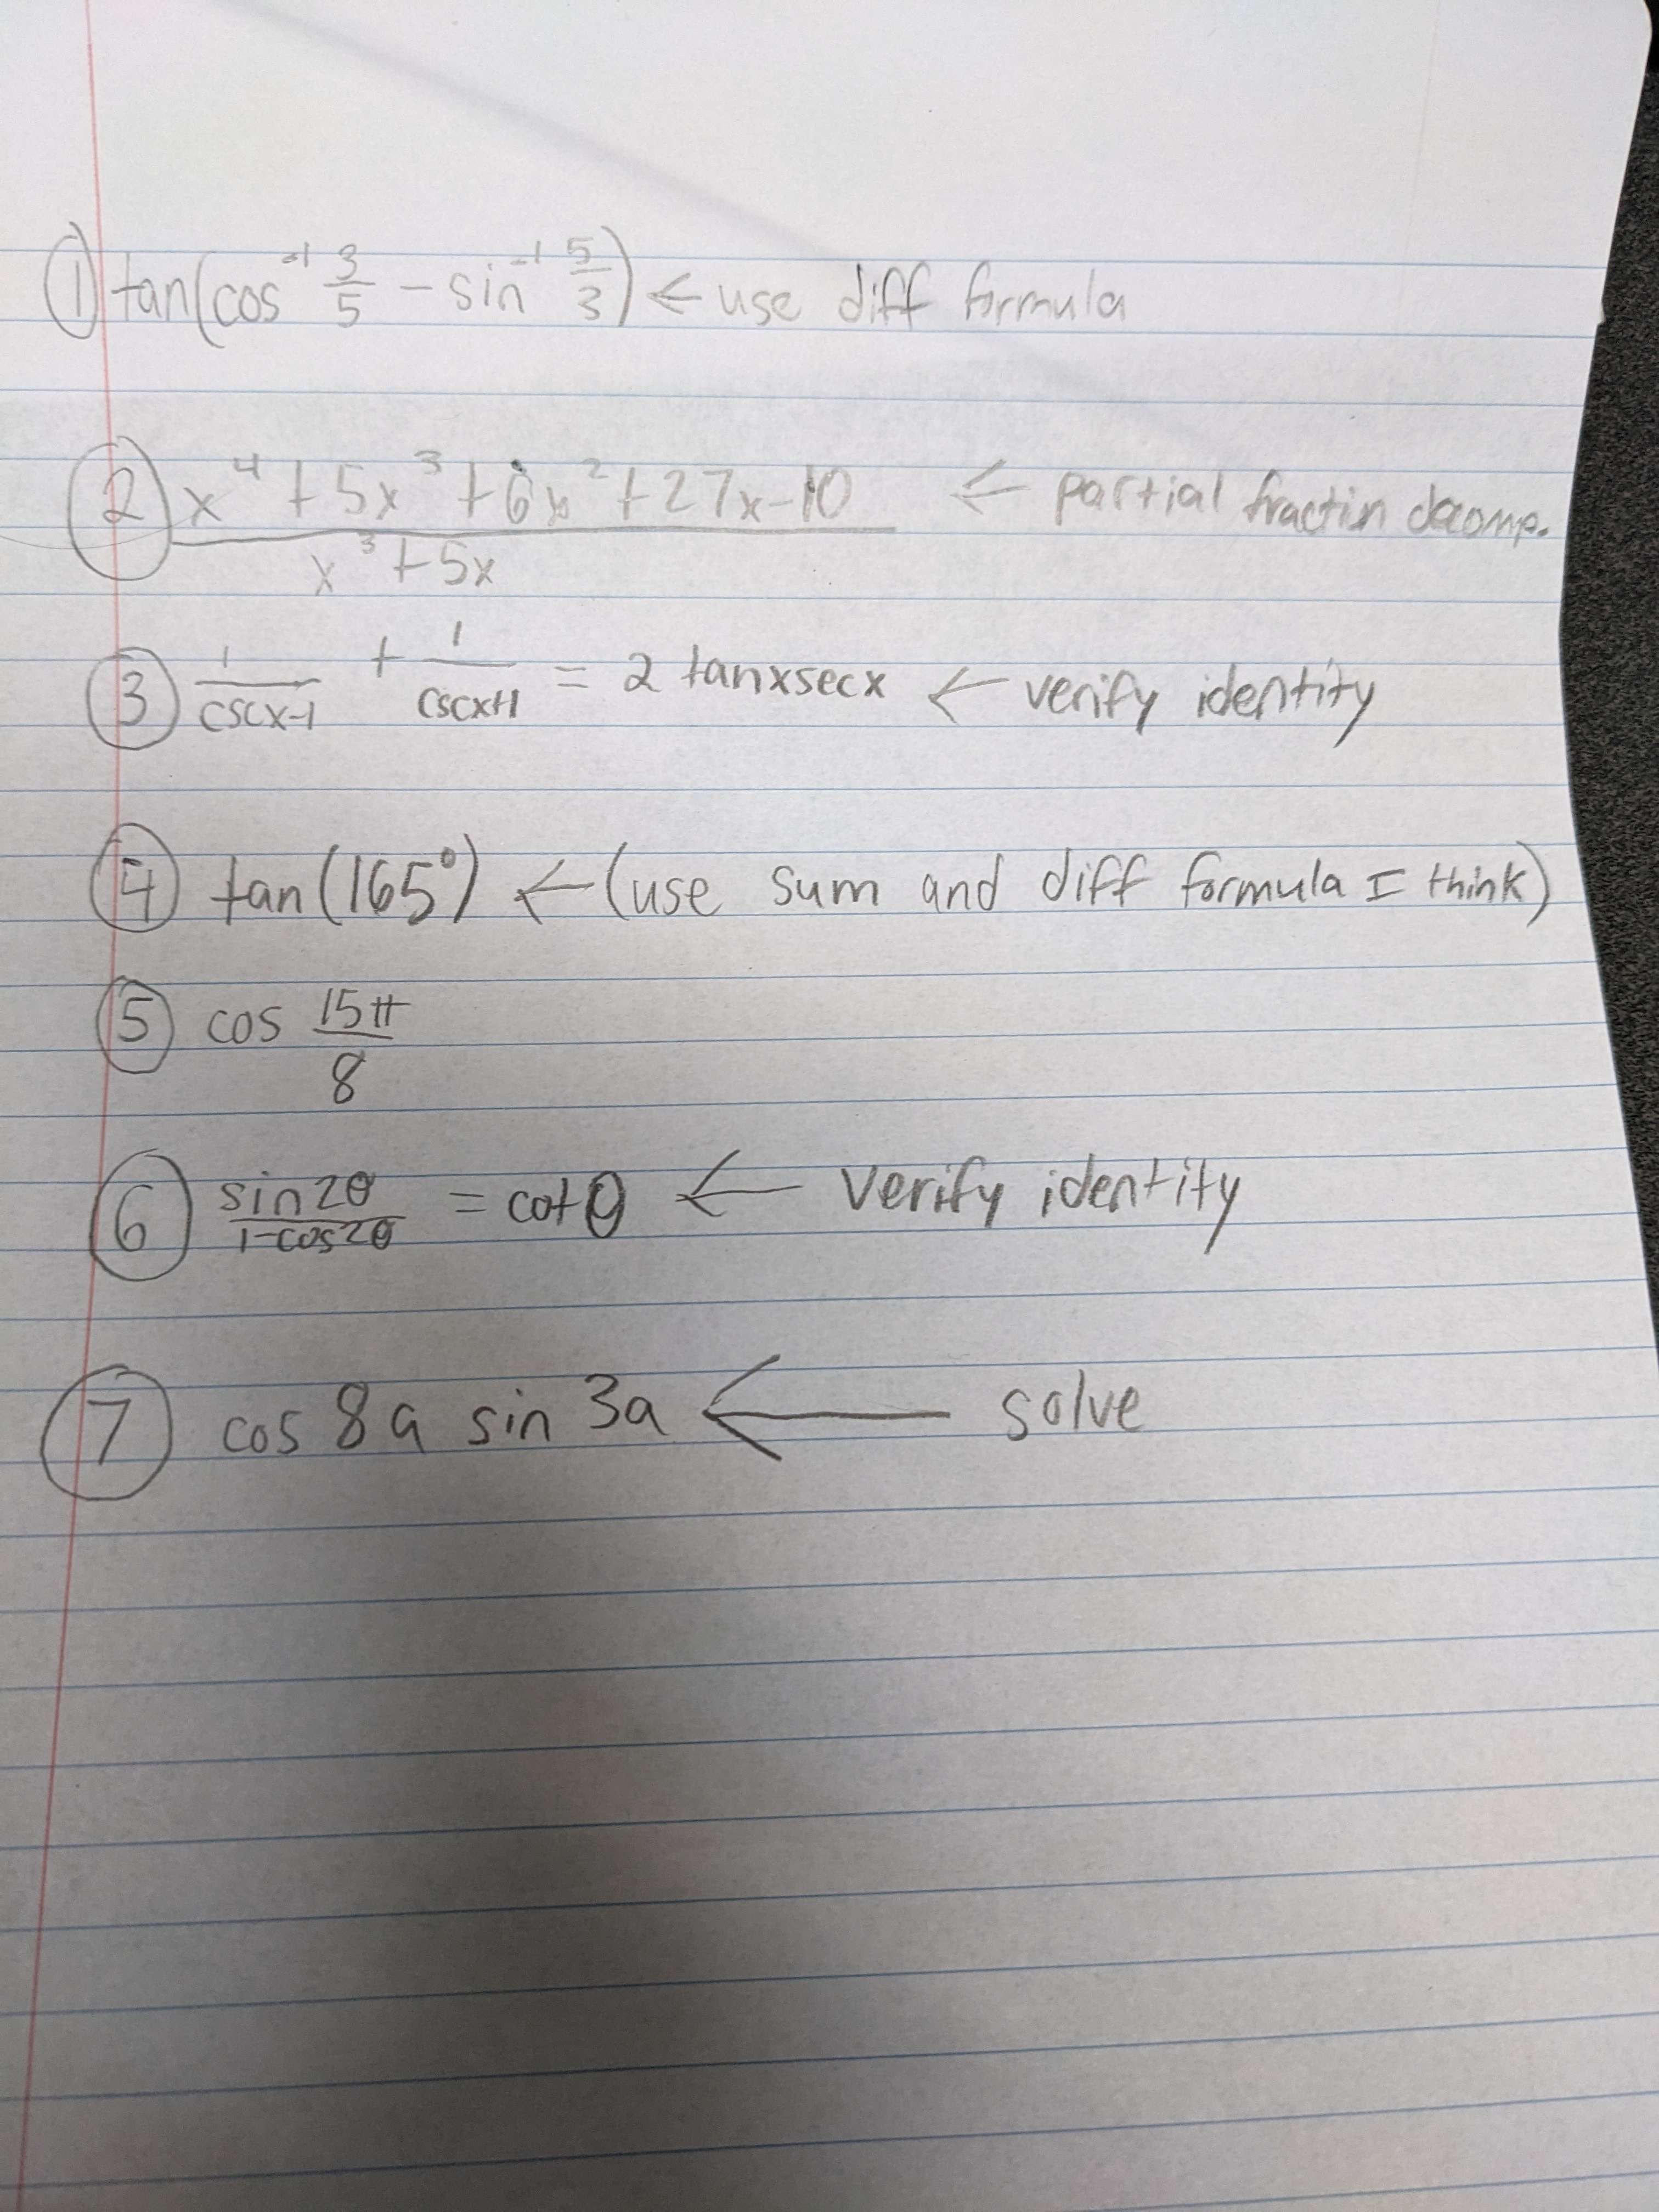 ① tan(cos⁻¹ 3/5 - sin⁻¹ 5/3) ← use diff formula
② (x⁴ + 5x³ + 6x² + 27x - 10)/(x³ + 5x) ← partial fractin decomp.
③ 1/(cscx-1) + 1/(cscx+1) = 2 tanxsecx ← verify identity
④ tan(165°) ← (use sum and diff formula I think)
⑤ cos 15π/8
⑥ sin2θ/(1-cos2θ) = cotθ ← verify identity
⑦ cos 8a sin 3a ← solve